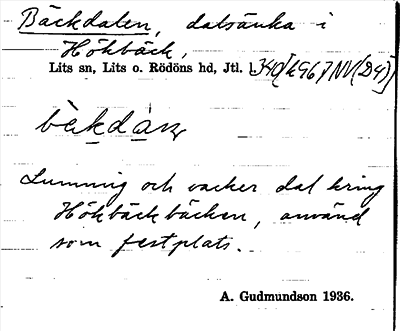 Bäckdalen, dalsänka i
HöKbäck,
Lits sn, Lits o. Rödöns hd, Jtl.
bèkdàṇ
Lummig och vacker dal kring
Hökbäckbäcken, använd
som festplats.
A. Gudmundson 1936.